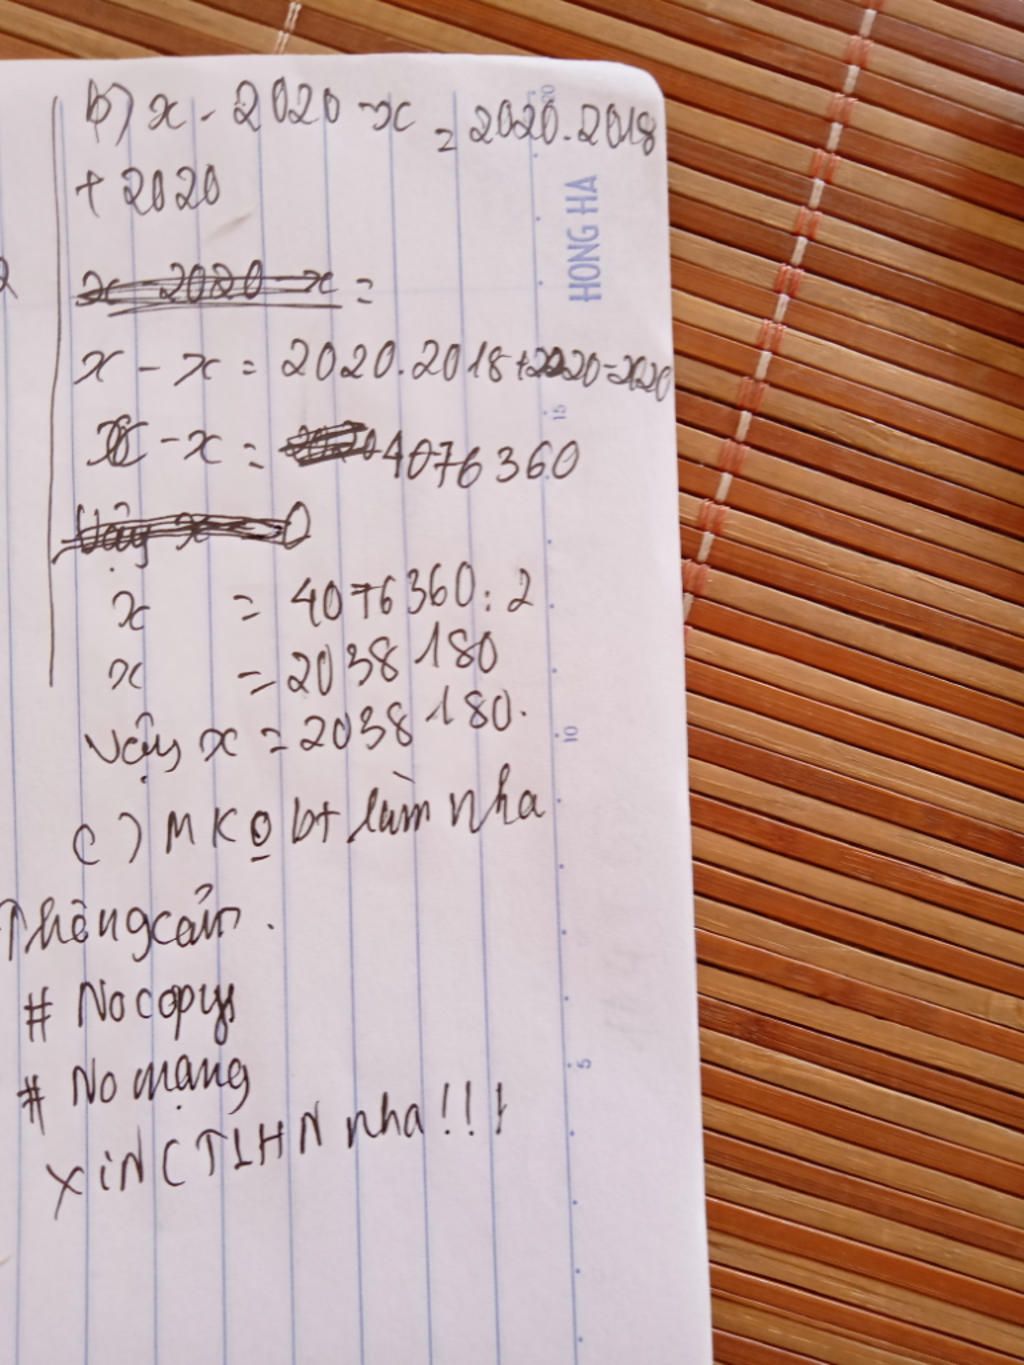 b) x - 2020 - x = 2020.2018
+ 2020
x - 2020 - x =
x - x = 2020.2018+2020-2020
x - x = 4076360
Vậy x 0
x = 4076360:2
x = 2038180
Vậy x = 2038180.
c) MK o bt làm nha
Thông cảm.
# No copy
# No mạng
XiN CTLHN nha!!!
HONG HA
20
15
10
5
2